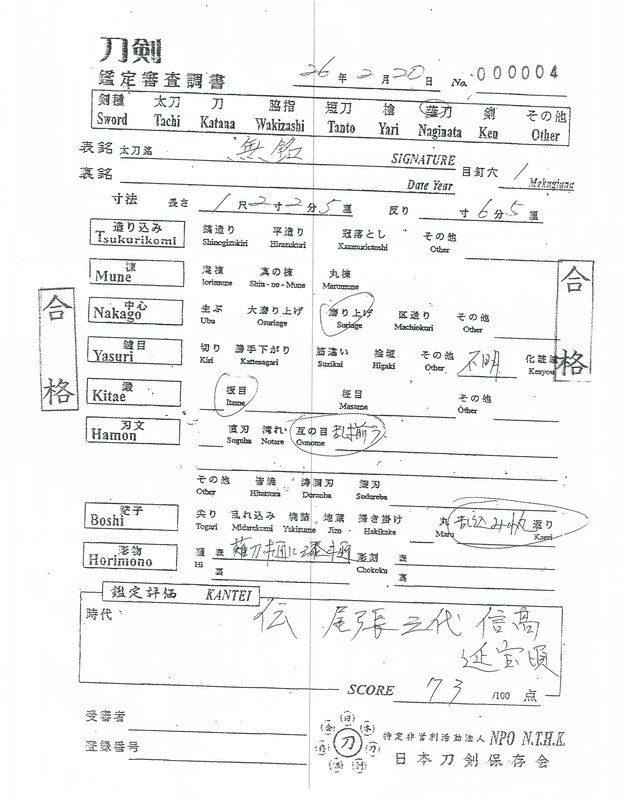 刀剣
鑑定審査調書
26年2月20日 No. 000004
剣種 太刀 刀 脇指 短刀 槍 薙刀 剣 その他
Sword Tachi Katana Wakizashi Tanto Yari Naginata Ken Other
表銘 太刀銘 無銘 SIGNATURE 目釘穴 1
裏銘 Date Year Mekugiana
寸法 長さ 1尺2寸2分5厘 反り 寸6分5厘
造り込み 鎬造り 平造り 冠落とし その他
Tsukurikomi Shinogizukuri Hirazukuri Kanmuriotoshi Other
棟 庵棟 真の棟 丸棟
Mune Iorimune Shin-no-Mune Marumune
合格
合格
中心 生ぶ 大磨り上げ 磨り上げ 区送り その他
Nakago Ubu Osuriage Suriage Machiokuri Other
鑢目 切り 勝手下がり 筋違い 桧垣 その他 不明 化粧鑢
Yasuri Kiri Kattesagari Suzikai Higaki Other Kesyou
鍛 板目 柾目 その他
Kitae Itame Masame Other
刃文 直刃 湾れ 互の目 乱揃う
Hamon Suguha Notare Gunome
その他 皆焼 濤瀾刃 簾刃
Other Hitatsura Doranba Sudareba
鋩子 尖り 乱れ込み 焼詰 地蔵 掃き掛け 丸 乱込み小丸 返り
Boshi Togari Midarekomi Yakizume Jizo Hakikake Maru Kaeri
彫物 樋 表 薙刀樋に添樋 彫刻 表
Horimono Hi 裏 Chokoku 裏
鑑定評価 KANTEI
時代、 伝 尾張三代 信高
延宝頃
SCORE 73 /100 点
受審者
登録番号
刀
特定非営利活動法人 NPO N.T.H.K.
日本刀剣保存会